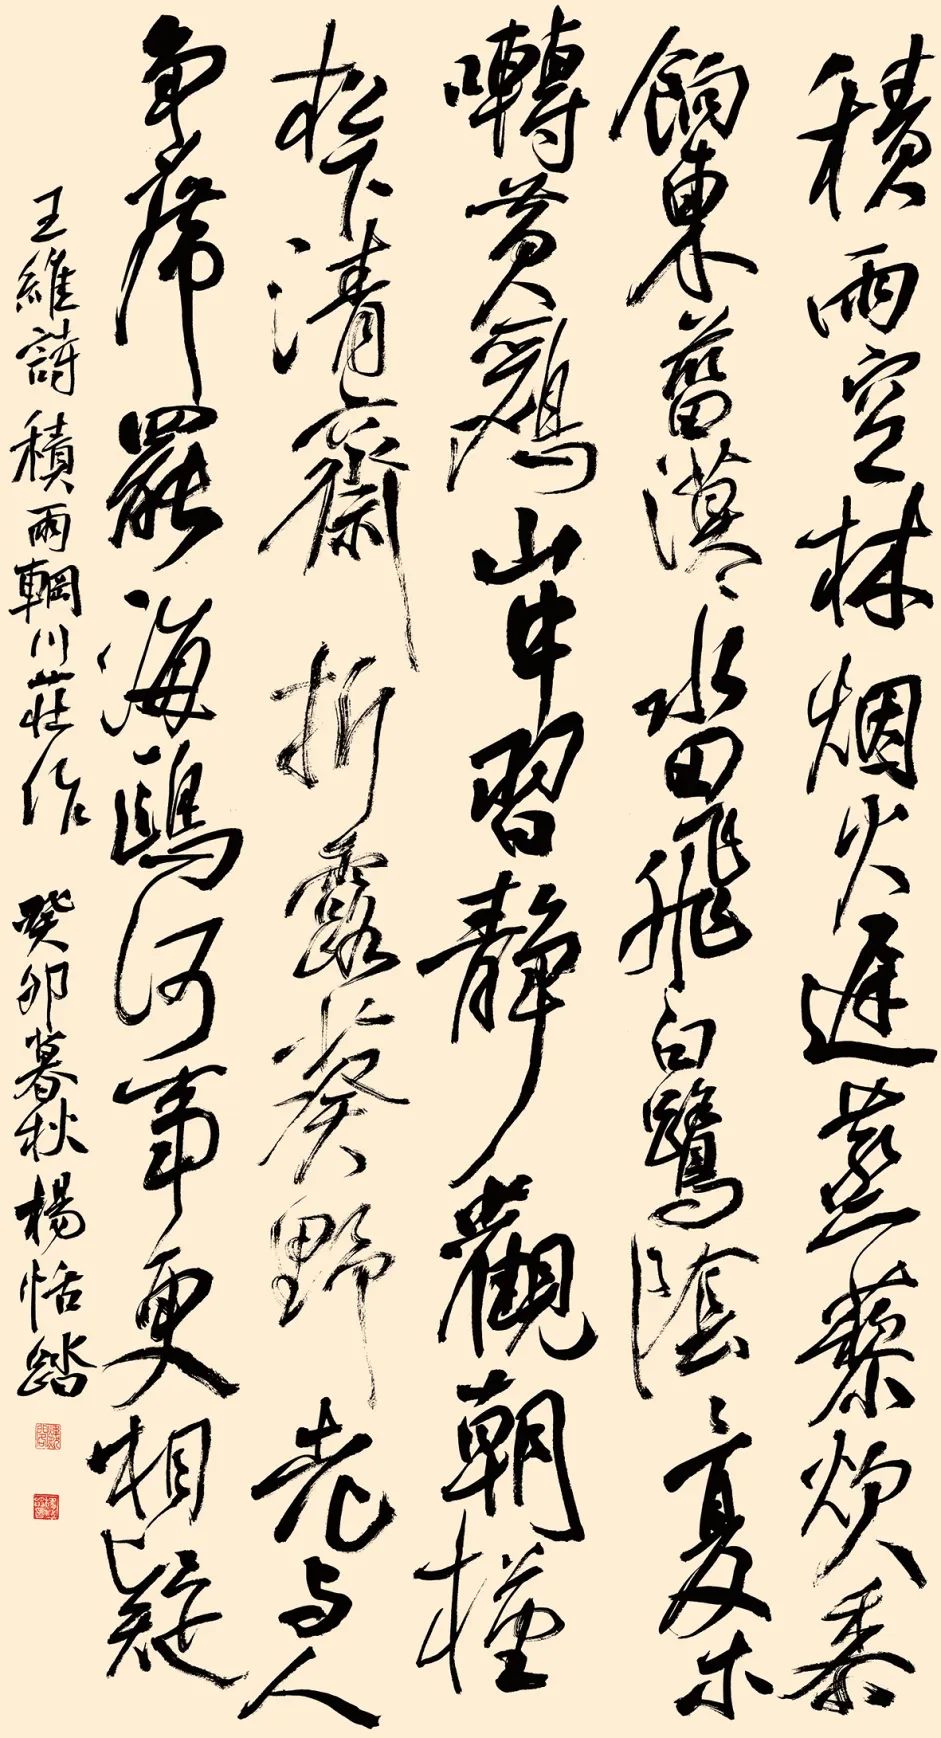 積雨空林烟火遲蒸藜炊黍
餉東菑漠〻水田飛白鷺陰〻夏木
囀黃鸝山中習靜觀朝槿
松下清齋折露葵野老与人
争席罷海鷗何事更相疑
王維詩積雨輞川莊作 癸卯暮秋楊恬踏